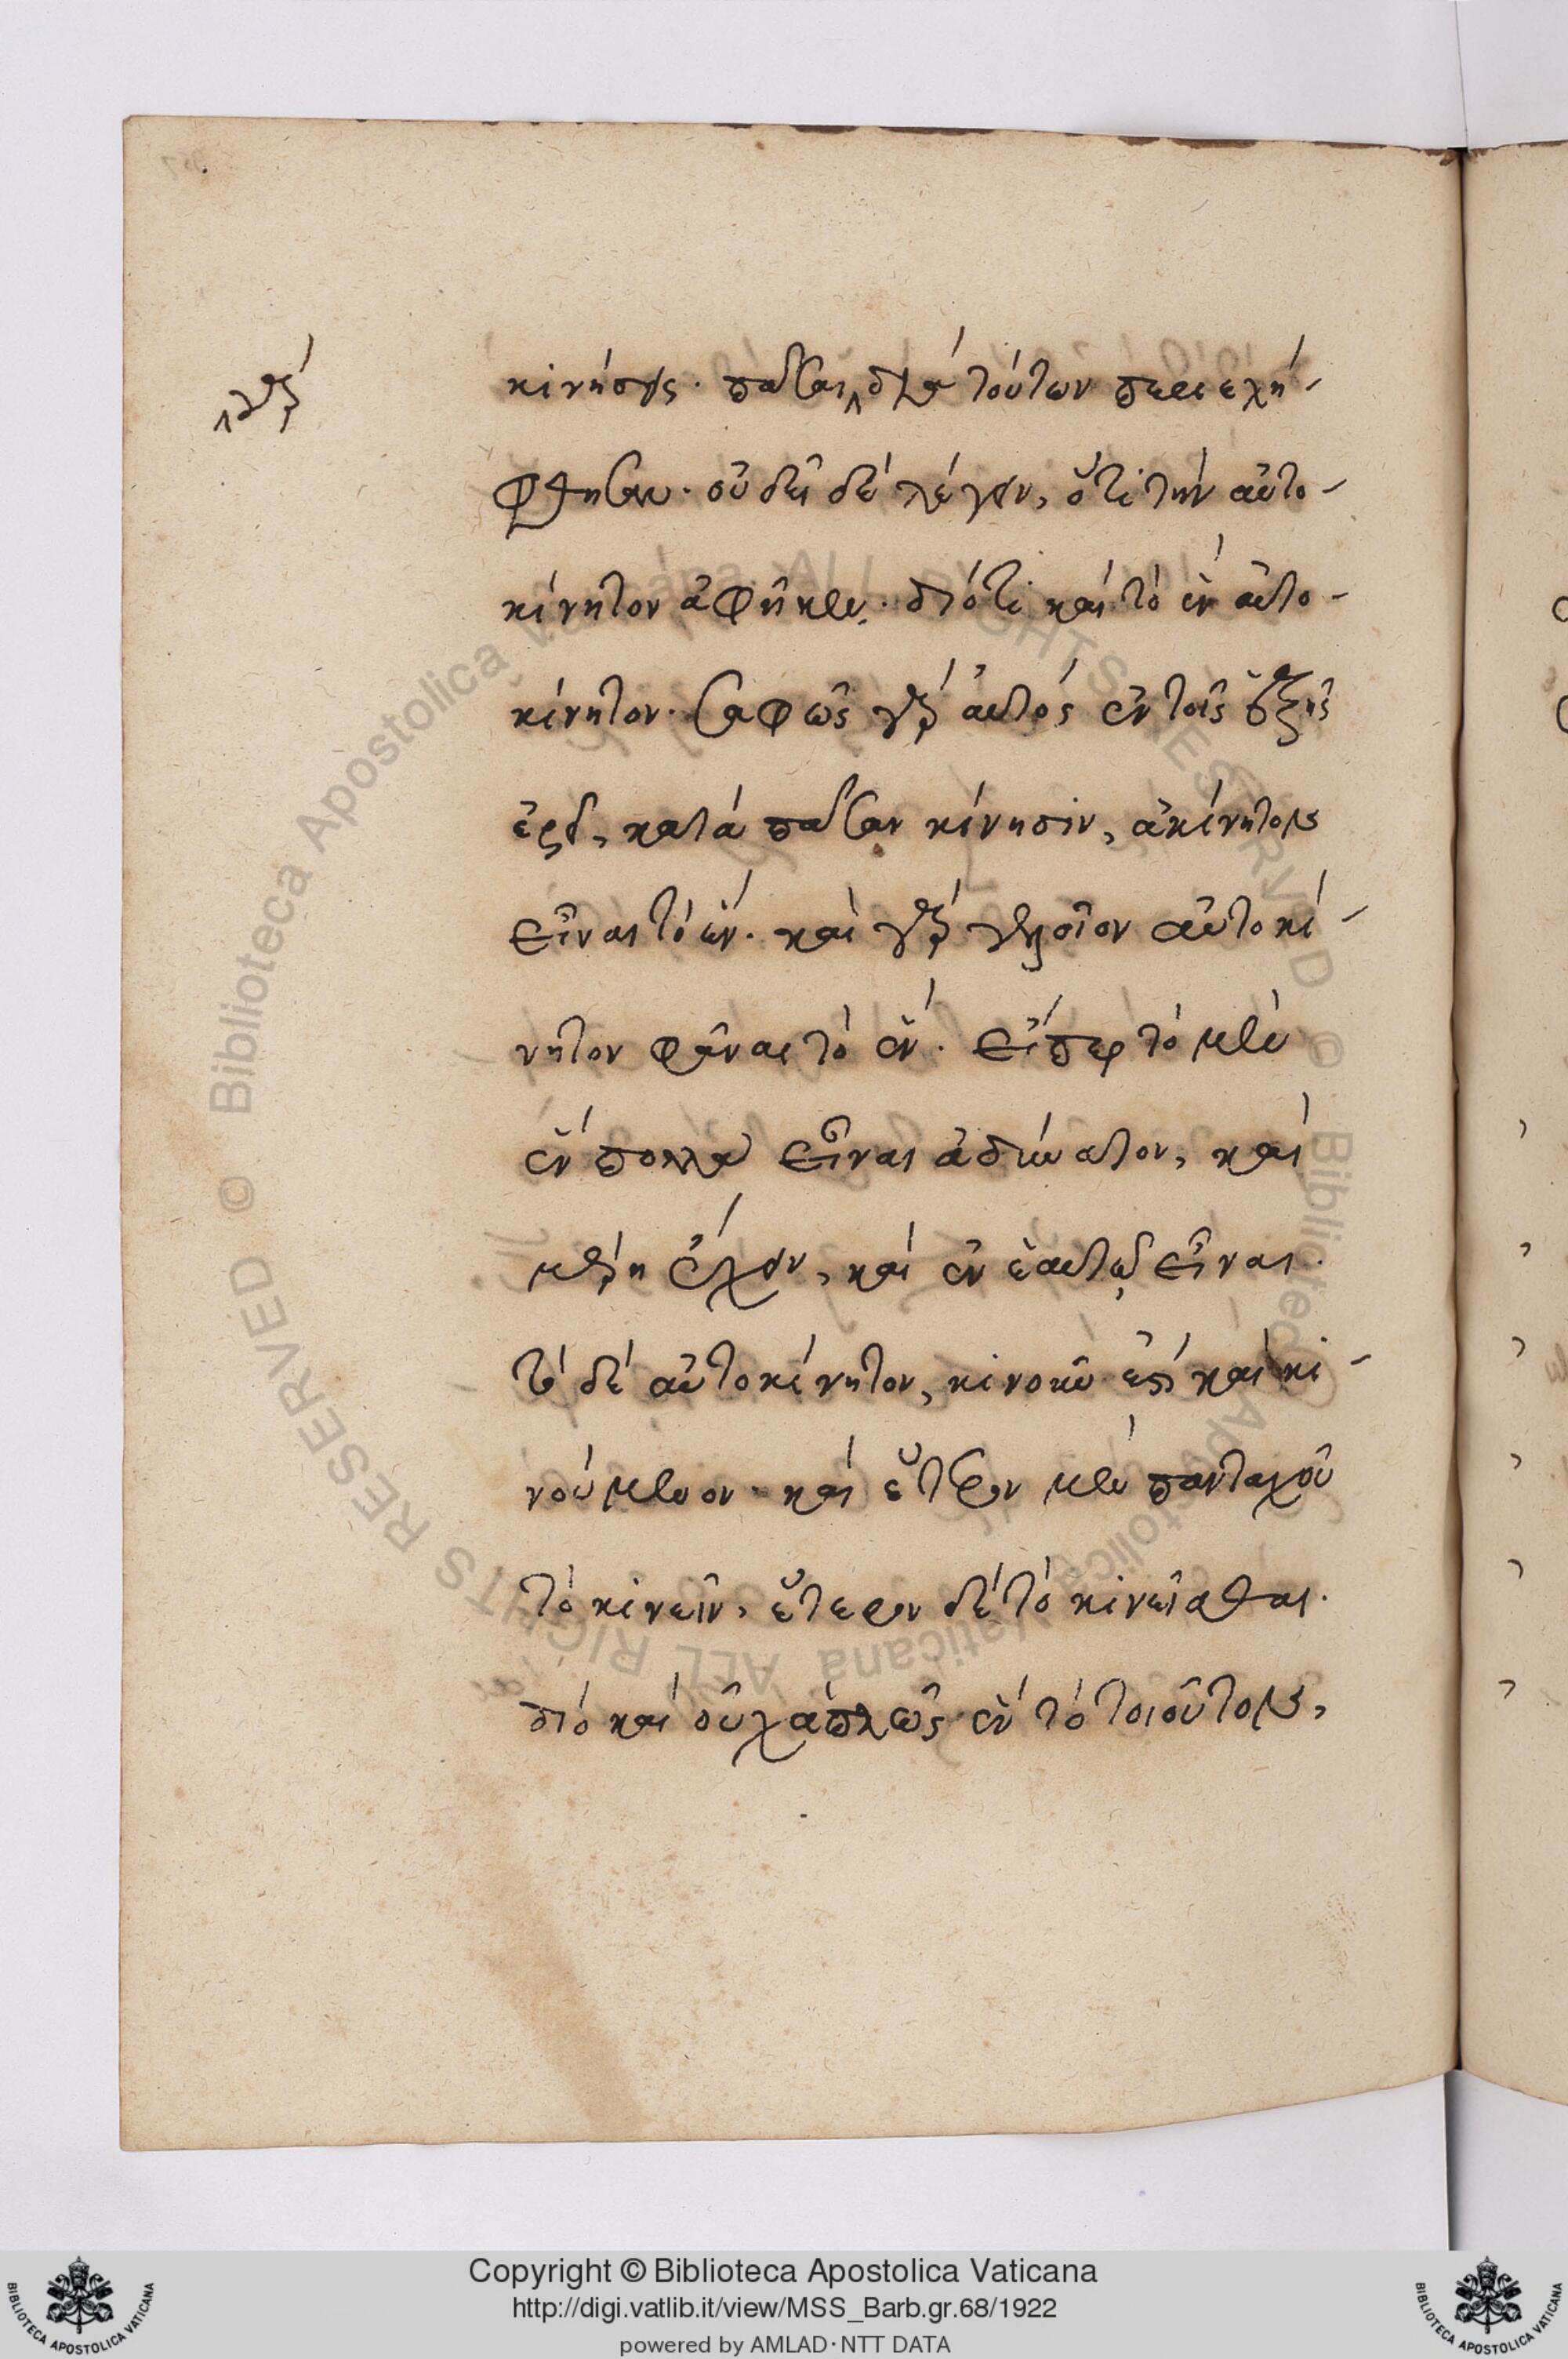 γὰρ
κινήσεις. πᾶσαι ⁁ διὰ τούτων περιεχή-
φθησαν. οὐ δεῖ δὲ λέγειν, ὅτι τὴν αὐτο-
κίνητον ἀφῆκεν. διότι καὶ τὸ ἓν αὐτο-
κίνητον. σαφῶς γὰρ αὐτὸς ἐν τοῖς ἑξῆς
ἐρεῖ, κατὰ πᾶσαν κίνησιν, ἀκίνητον
εἶναι τὸ ἕν. καὶ γὰρ γελοῖον αὐτοκί-
νητον φάναι τὸ ἕν. εἴπερ τὸ μὲν
ἓν πολλὰ εἶναι ἀδύνατον, καὶ
μέρη ἔχειν, καὶ ἐν ἑαυτῷ εἶναι.
τὸ δὲ αὐτοκίνητον, κινοῦν ἐστὶ καὶ κι-
νούμενον. καὶ ἕτερον μὲν πανταχοῦ
τὸ κινεῖν, ἕτερον δὲ τὸ κινεῖσθαι.
διὸ καὶ οὐχ ἁπλῶς ἓν τὸ τοιοῦτον,
© Biblioteca Apostolica Vaticana ALL RIGHTS RESERVED
© Biblioteca Apostolica Vaticana ALL RIGHTS RESERVED
Copyright © Biblioteca Apostolica Vaticana
http://digi.vatlib.it/view/MSS_Barb.gr.68/1922
powered by AMLAD·NTT DATA
BIBLIOTECA APOSTOLICA VATICANA
BIBLIOTECA APOSTOLICA VATICANA